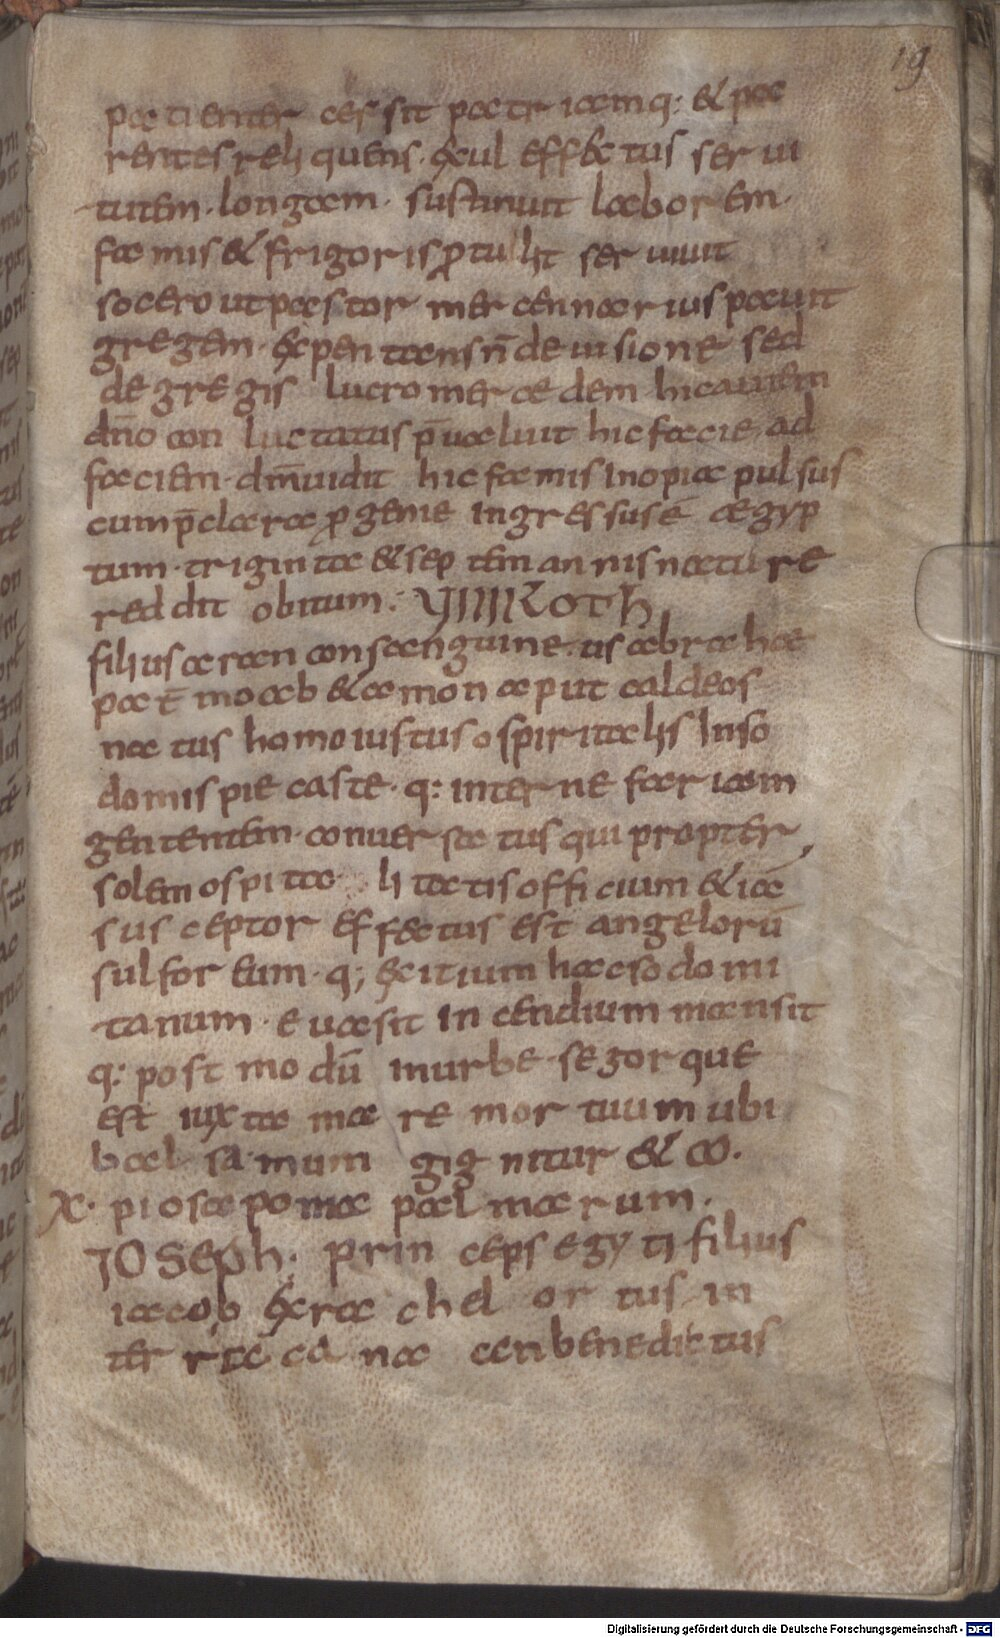 19
patienter cessit patriamq: & pa
rentes reliquens. exul effectus ser ui
tutem. longam. sustinuit laborem.
famis & frigoris ptulit seruiuit
socero ut pastor mercennarius pauit
gregem. expentans n̄ de uisione sed
de gregis lucro mercedem hic autem
dn̄o conluctatus p̄ualuit hic facie ad
faciem. dm̄ uidit hic famis inopia pulsus
cum p̄clara pgenie ingressus ē aegyp
tum. triginta & septem annis nature
reddit obitum. VIIII Loth
filius aran consanguine us abrahae
pat̄ moab & amon aput caldeos
natus homo iustus ospiritalis Inso
domis pie caste. q: inter nefariam
gententem. conuersatus qui propter
solem ospita li tatis officium & ia
susceptor effectus est angelorū
sulforeum. q; exitium hac sodomi
tanum. euasit incendium mansit
q: post modū inurbe. segor que
est iuxta mare mortuum ubi
balsamum gignitur & co.
X. piosa poma palmarum.
IOSeph. princeps egyti filius
iacob exrachel ortus in
terra ca naan benedictus
Digitalisierung gefördert durch die Deutsche Forschungsgemeinschaft - DFG